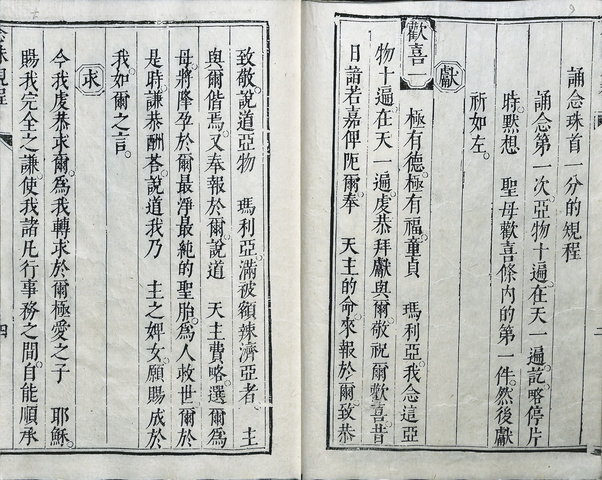 誦念珠首一分的規程
誦念第一次。亞物十遍。在天一遍。訖。略停片
時。黙想　聖母歡喜條内的第一件。然後獻
祈如左。
獻
歡喜一　極有德。極有福。童貞　瑪利亞。我念這亞
物十遍。在天一遍。虔恭拜獻與爾。敬祝爾歡喜。昔
日諳若嘉俾阨爾。奉　天主的命。來報於爾。致恭
致敬。說道亞物　瑪利亞。滿被額辣濟亞者。　主
與爾偕焉。又奉報於爾。說道　天主費略。選爾爲
母。將降孕於爾最淨最純的聖胎。爲人救世。爾於
是時。謙恭酬荅。說道我乃　主之婢女。願賜成於
我。如爾之言。
求
今我虔恭求爾。爲我轉求於爾極愛之子　耶穌。
賜我完全之謙。使我諸凡行事務之間。自能順承
念珠規程
四